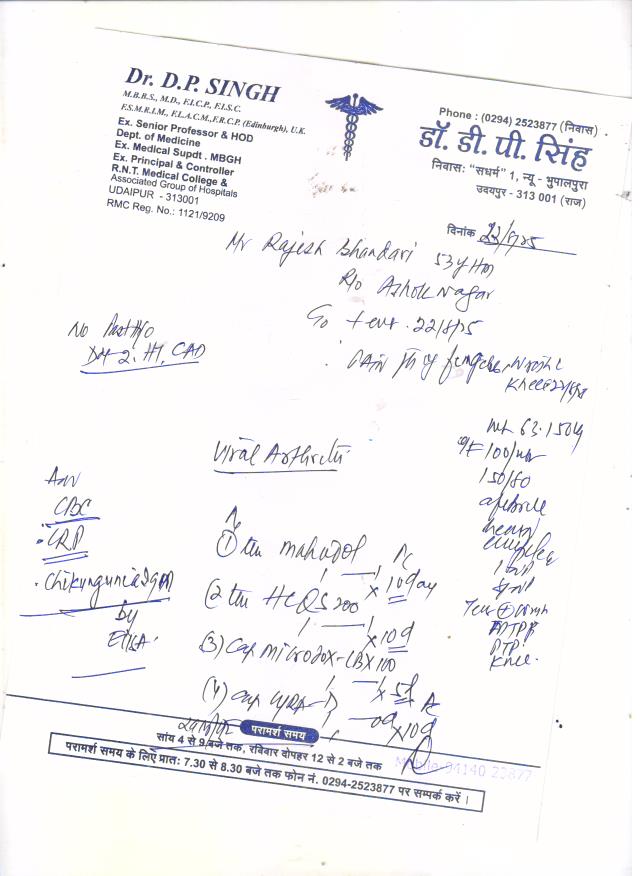 Dr. D.P. SINGH
M.B.B.S., M.D., F.I.C.P., F.I.S.C.
F.S.M.R.I.M., F.I.A.C.M., F.R.C.P. (Edinburgh), U.K.
Ex. Senior Professor & HOD
Dept. of Medicine
Ex. Medical Supdt. MBGH
Ex. Principal & Controller
R.N.T. Medical College &
Associated Group of Hospitals
UDAIPUR - 313001
RMC Reg. No.: 1121/9209
Phone : (0294) 2523877 (निवास)
डॉ. डी. पी. सिंह
निवास: "सधर्म" 1, न्यू - भुपालपुरा
उदयपुर - 313 001 (राज)
दिनांक
Mr Rajesh Bhandari 53y
R/o Ashok Nagar
22/8/25
No Past H/o
DM 2, HT, CAD
Pain fingers wrist
Knee
Wt 63.150 kg
100/min
150/80
afebrile
Viral Arthritis
Adv
CBC
CRP
Chikungunia IgM
by
ELISA
① tab mahadol
1 — 1 x 10 day
(2 tab HCQS 200
1 — 1 x 10d
(3) Cap microdox-LBX 100
1 — 1 x 5d
(4) cap
x 10d
Knee
परामर्श समय
सांय 4 से 9 बजे तक, रविवार दोपहर 12 से 2 बजे तक
Mobile: 94140 23877
परामर्श समय के लिए प्रात: 7.30 से 8.30 बजे तक फोन नं. 0294-2523877 पर सम्पर्क करें ।